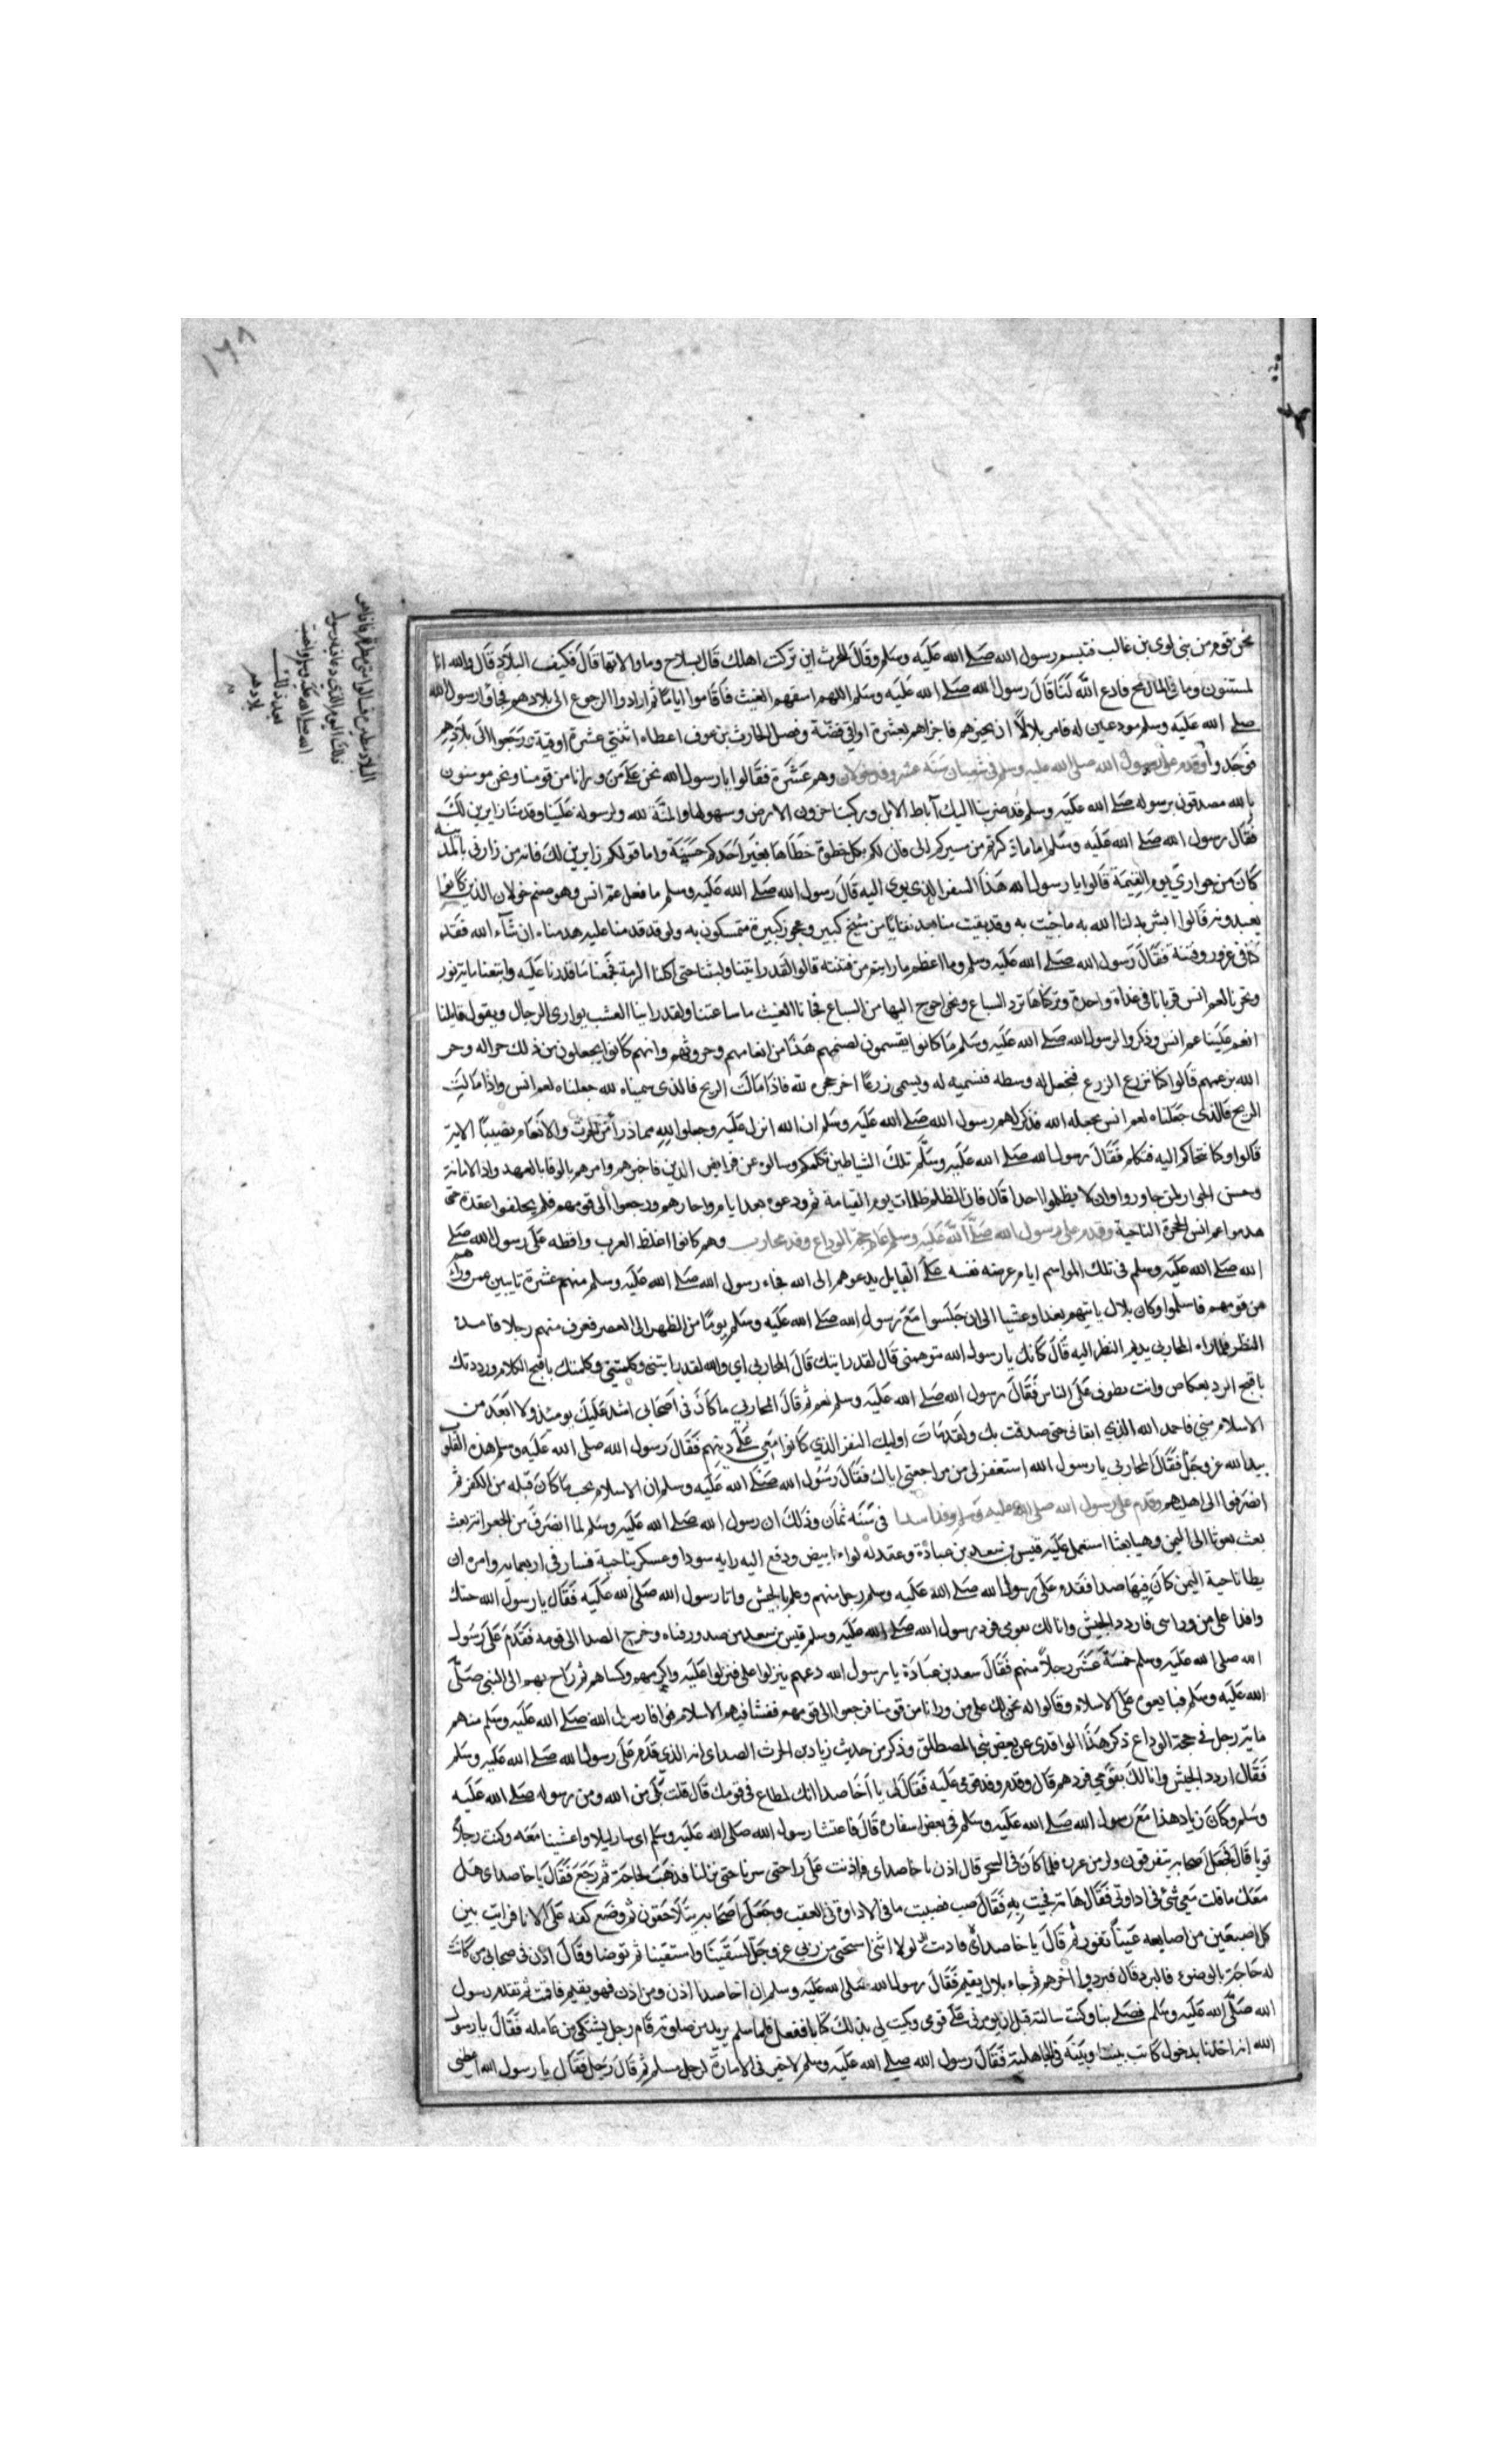 ١٦٨
نحن قوم من بني لوي بن غالب فتبسم رسول الله صلى الله عليه وسلم وقال للحرث اين تركت اهلك قال بسلاح وما والاتها قال فكيف البلاد قال والله انا
لمسنتون وما في المال مح فادع الله لنا قال رسول الله صلى الله عليه وسلم اللهم اسقهم الغيث فاقاموا اياما ثم ارادوا الرجوع الى بلادهم فجاؤا رسول الله
صلى الله عليه وسلم مودعين له فامر بلالاً ان يجيزهم فاجزاهم بعشرة اواقي فضة وفضل الحارث بن عوف اعطاه اثنتي عشرة اوقية ورجعوا الى بلادهم
فوجدوا وقدم على رسول الله صلى الله عليه وسلم في شعبان سنة عشر وفد خولان وهم عشرة فقالوا يا رسول الله نحن على من ورانا من قومنا ونحن مومنون
بالله مصدقون برسوله صلى الله عليه وسلم قد ضربنا اليك آباط الابل وركبنا حزون الارض وسهولها والمنة لله ولرسوله علينا وقدمنا زايرين لك
فقال رسول الله صلى الله عليه وسلم اما ما ذكرتم من مسيركم الى فان لكم بكل خطوة خطاها بعير احدكم حسنة واما قولكم زايرين لك فانه من زارني بالمدينة
كان من جواري يوم القيمة قالوا يا رسول الله هذا السفر الذي لا توى اليه قال رسول الله صلى الله عليه وسلم ما فعل عم انس وهو صنم خولان الذين كانوا
يعبدونه قالوا ابشر بدلنا الله به ما جيت به وقد بقيت منا بعد بقايا من شيخ كبير وعجوز كبيرة متمسكون به ولو قد قدمنا عليه هدمناه ان شآء الله فقد
كنا في غرور وفتنة فقال رسول الله صلى الله عليه وسلم وما اعظم ما رايتم من فتنته قالوا لقد رايتنا واسنتنا حتى اكلنا الرمة فجمعنا ما قدرنا عليه وابتعنا ماية ثور
ونحرنا لعم انس قربانا في غداة واحدة وتركناها ترد السباع ونحن احوج اليها من السباع فجانا الغيث من ساعتنا ولقد راينا العشب يواري الرجال ويقول قايلنا
انعم علينا عم انس وذكروا لرسول الله صلى الله عليه وسلم ما كانوا يقسمون لصنمهم هذا من انعامهم وحروثهم وانهم كانوا يجعلون من ذلك جزا له وجز
الله بزعمهم قالوا كنا نزرع الزرع فنجعل له وسطه فنسميه له ونسمى زرعًا اخر حجره لله فاذا مالت الريح فالذى سميناه لله جعلناه لعم انس واذا مالت
الريح فالذى جعلناه لعم انس نجعله لله فذكر لهم رسول الله صلى الله عليه وسلم ان الله انزل عليه وجعلوا لله مما ذرأ من الحرث والانعام نصيبًا الاية
قالوا وكنا نتحاكم اليه فنكلم فقال رسول الله صلى الله عليه وسلم تلك الشياطين تكلمكم وسالوه عن فرايض الدين فاخبرهم وامرهم بالوفا بالعهد واذا الامانة
وحسن الجوار لمن جاوروا وان لا يظلموا احدا قال فان الظلم ظلمات يوم القيامة ثم ودعوه بعد ايام واجازهم ورجعوا الى قومهم فلم يحلوا عقدة حتى
هدموا عم انس وقدم على رسول الله صلى الله عليه وسلم عام حجة الوداع وفد محارب وهم كانوا اغلظ العرب وافظه على رسول الله صلى
الله صلى الله عليه وسلم في تلك المواسم ايام عرضه نفسه على القبايل يدعوهم الى الله فجاء رسول الله صلى الله عليه وسلم منهم عشرة نايبين عمن وراهم
من قومهم فاسلموا وكان بلال ياتيهم بغدا وعشيا الى ان جلسوا مع رسول الله صلى الله عليه وسلم يومًا من الظهر الى العصر فعرف منهم رجلا فامده
النظر فلما راه المحاربي يديم النظر اليه قال كانك يا رسول الله توهمني قال لقد رايتك قال المحاربي اي والله لقد رايتني وكلمتني وكلمتك باقبح الكلام ورددتك
باقبح الرد بعكاص وانت تطوف على الناس فقال رسول الله صلى الله عليه وسلم نعم ثم قال المحاربي ما كان في اصحابي اشد عليك يومئذ ولا ابعد من
الاسلام مني فاحمد الله الذي ابقاني حتى صدقت بك ولقد مات اوليك النفر الذي كانوا معي على دينهم فقال رسول الله صلى الله عليه وسلم هذه القلوب
بيد الله عز وجل فقال المحاربي يا رسول الله استغفر لي من مراجعتي اياك فقال رسول الله صلى الله عليه وسلم ان الاسلام يجب ما كان قبله من الكفر ثم
انصرفوا الى اهليهم وقدم على رسول الله صلى الله عليه وسلم وفد صدا في سنة ثمان وذلك ان رسول الله صلى الله عليه وسلم لما انصرف من الجعرانة بعث
بعث بعوثا الى اليمن وهيا بعثا استعمل عليه قيس بن سعد بن عبادة وعقد له لواء ابيض ودفع اليه راية سودا وعسكر بناحية قناة في اربعماية وامره ان
يطا ناحية اليمن كان فيها صدا فقدم على رسول الله صلى الله عليه وسلم رجل منهم وعلم بالجيش واتا رسول الله صلى الله عليه فقال يا رسول الله جئتك
وافدا على من وراى فاردد الجيش وانا لك بقومى فرد رسول الله صلى الله عليه وسلم قيس بن سعد من صدور قناه وخرج الصدا الى قومه فقدم على رسول
الله صلى الله عليه وسلم خمسة عشر رجلاً منهم فقال سعد بن عبادة يا رسول الله دعهم ينزلوا على فنزلوا عليه واكرمهم وكساهم ثم راح بهم الى النبى صلى
الله عليه وسلم فبايعوه على الاسلام وقالوا له نحن لك على من ورانا من قومنا فرجعوا الى قومهم ففشا فيهم الاسلام فوافا رسول الله صلى الله عليه وسلم منهم
ماية رجل في حجة الوداع ذكر هذا الواقدى عن بعض بني المصطلق وذكر من حديث زياد بن الحرث الصداى انه الذي قدم على رسول الله صلى الله عليه وسلم
فقال اردد الجيش وانا لك بقومي فردهم قال وقدم وفد قومي عليه فقال لى يا أخا صدا انك لمطاع في قومك قال قلت بلى من الله ومن رسوله صلى الله عليه
وسلم وكان زياد هذا مع رسول الله صلى الله عليه وسلم في بعض اسفاره قال فاعتشا رسول الله صلى الله عليه وسلم اى سار ليلا واعتشينا معه وكنت رجلاً
قويا قال فجعل اصحابه يتفرقون ولزمت غرزه فلما كان في السحر قال اذن يا اخا صداى فاذنت على راحلتى سرنا حتى نزلنا فذهب لحاجة ثم رجع فقال يا اخا صداى هل
معك ما قلت معي شئ في اداوتي فقال هاته فجيت به فقال صب فصببت ما في الاداوة في القعب وجعل اصحابه يتلاحقون ثم وضع كفه على الانا فرايت بين
كل اصبعين من اصابعه عينًا تفور ثم قال يا اخا صداى لولا اننى استحى من ربي عز وجل لسقينا واستقينا ثم توضا وقال اذن في صحابي من كانت
له حاجة بالوضوء فاليرد قال فوردوا اخرهم ثم جاء بلال يقيم فقال رسول الله صلى الله عليه وسلم ان اخا صدا اذن ومن اذن فهو يقيم فاقمت ثم تقدم رسول
الله صلى الله عليه وسلم فصلى بنا وكنت سالته قبل ان يومرنى على قومى ويكتب لى بذلك كتابا ففعل فلما سلم يريد من صلوته قام رجل يشتكى من عامله فقال يا رسول
الله انه اخذنا بذحول كانت بيننا وبينه في الجاهلية فقال رسول الله صلى الله عليه وسلم لا خير في الامارة لرجل مسلم ثم قال رجل فقال يا رسول الله اعطني